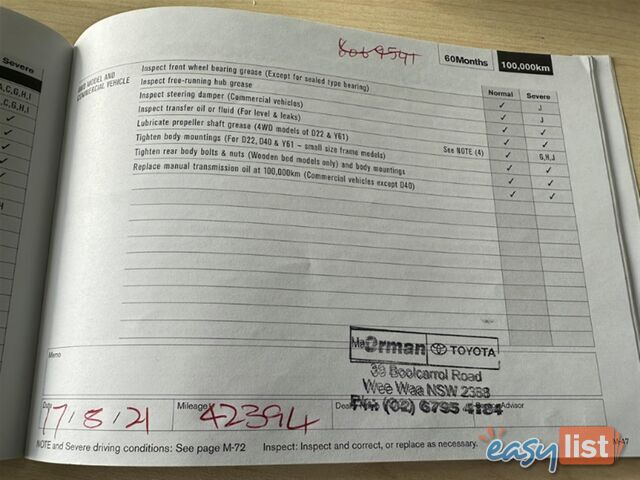 Severe
A,C,G,H,I
A,C,G,H,I
8069591
60Months
100,000km
4WD MODEL AND
COMMERCIAL VEHICLE
Normal Severe
Inspect front wheel bearing grease (Except for sealed type bearing) ✓ J
Inspect free-running hub grease ✓ J
Inspect steering damper (Commercial vehicles) ✓ ✓
Inspect transfer oil or fluid (For level & leaks) See NOTE (4) ✓ G,H,J
Lubricate propeller shaft grease (4WD models of D22 & Y61) ✓ ✓
Tighten body mountings (For D22, D40 & Y61 – small size frame models) ✓ ✓
Tighten rear body bolts & nuts (Wooden bed models only) and body mountings ✓ ✓
Replace manual transmission oil at 100,000km (Commercial vehicles except D40)
Memo
Orman TOYOTA
39 Boolcarrol Road
Wee Waa NSW 2388
Ph: (02) 6795 4184
Date 17/8/21 Mileage 42394 Advisor
NOTE and Severe driving conditions: See page M-72 Inspect: Inspect and correct, or replace as necessary. M-47
easylist